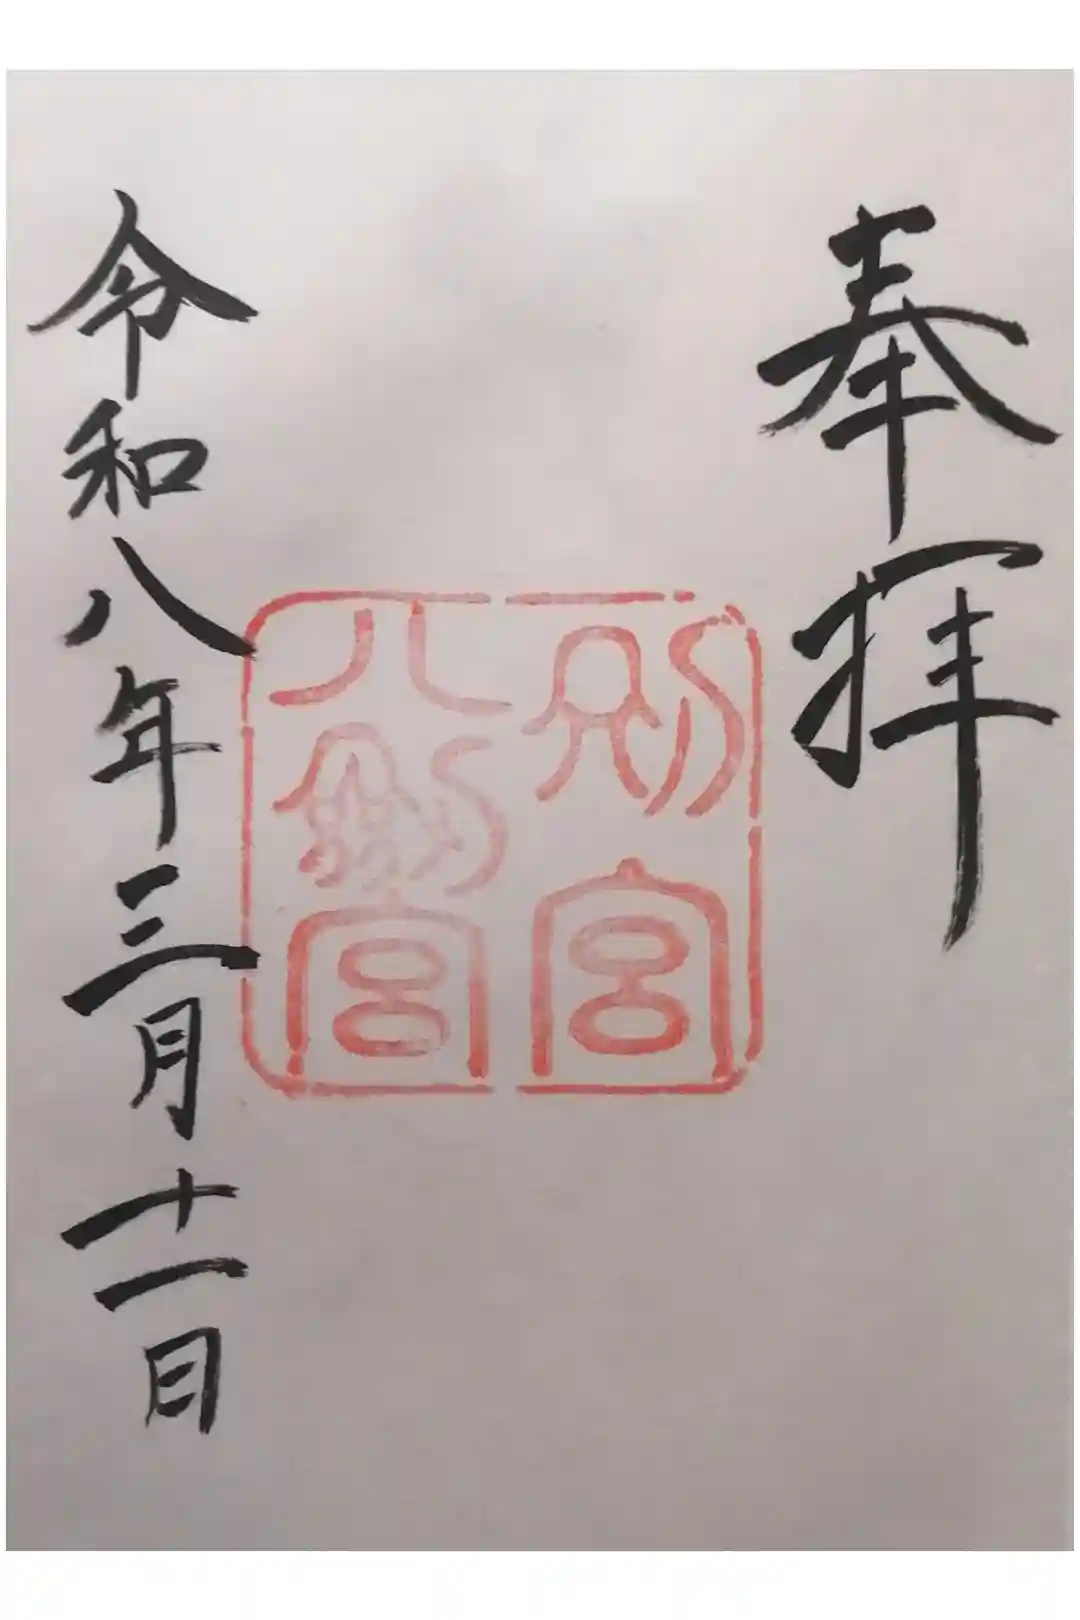 奉拝
別宮
八剣宮
令和八年三月十一日